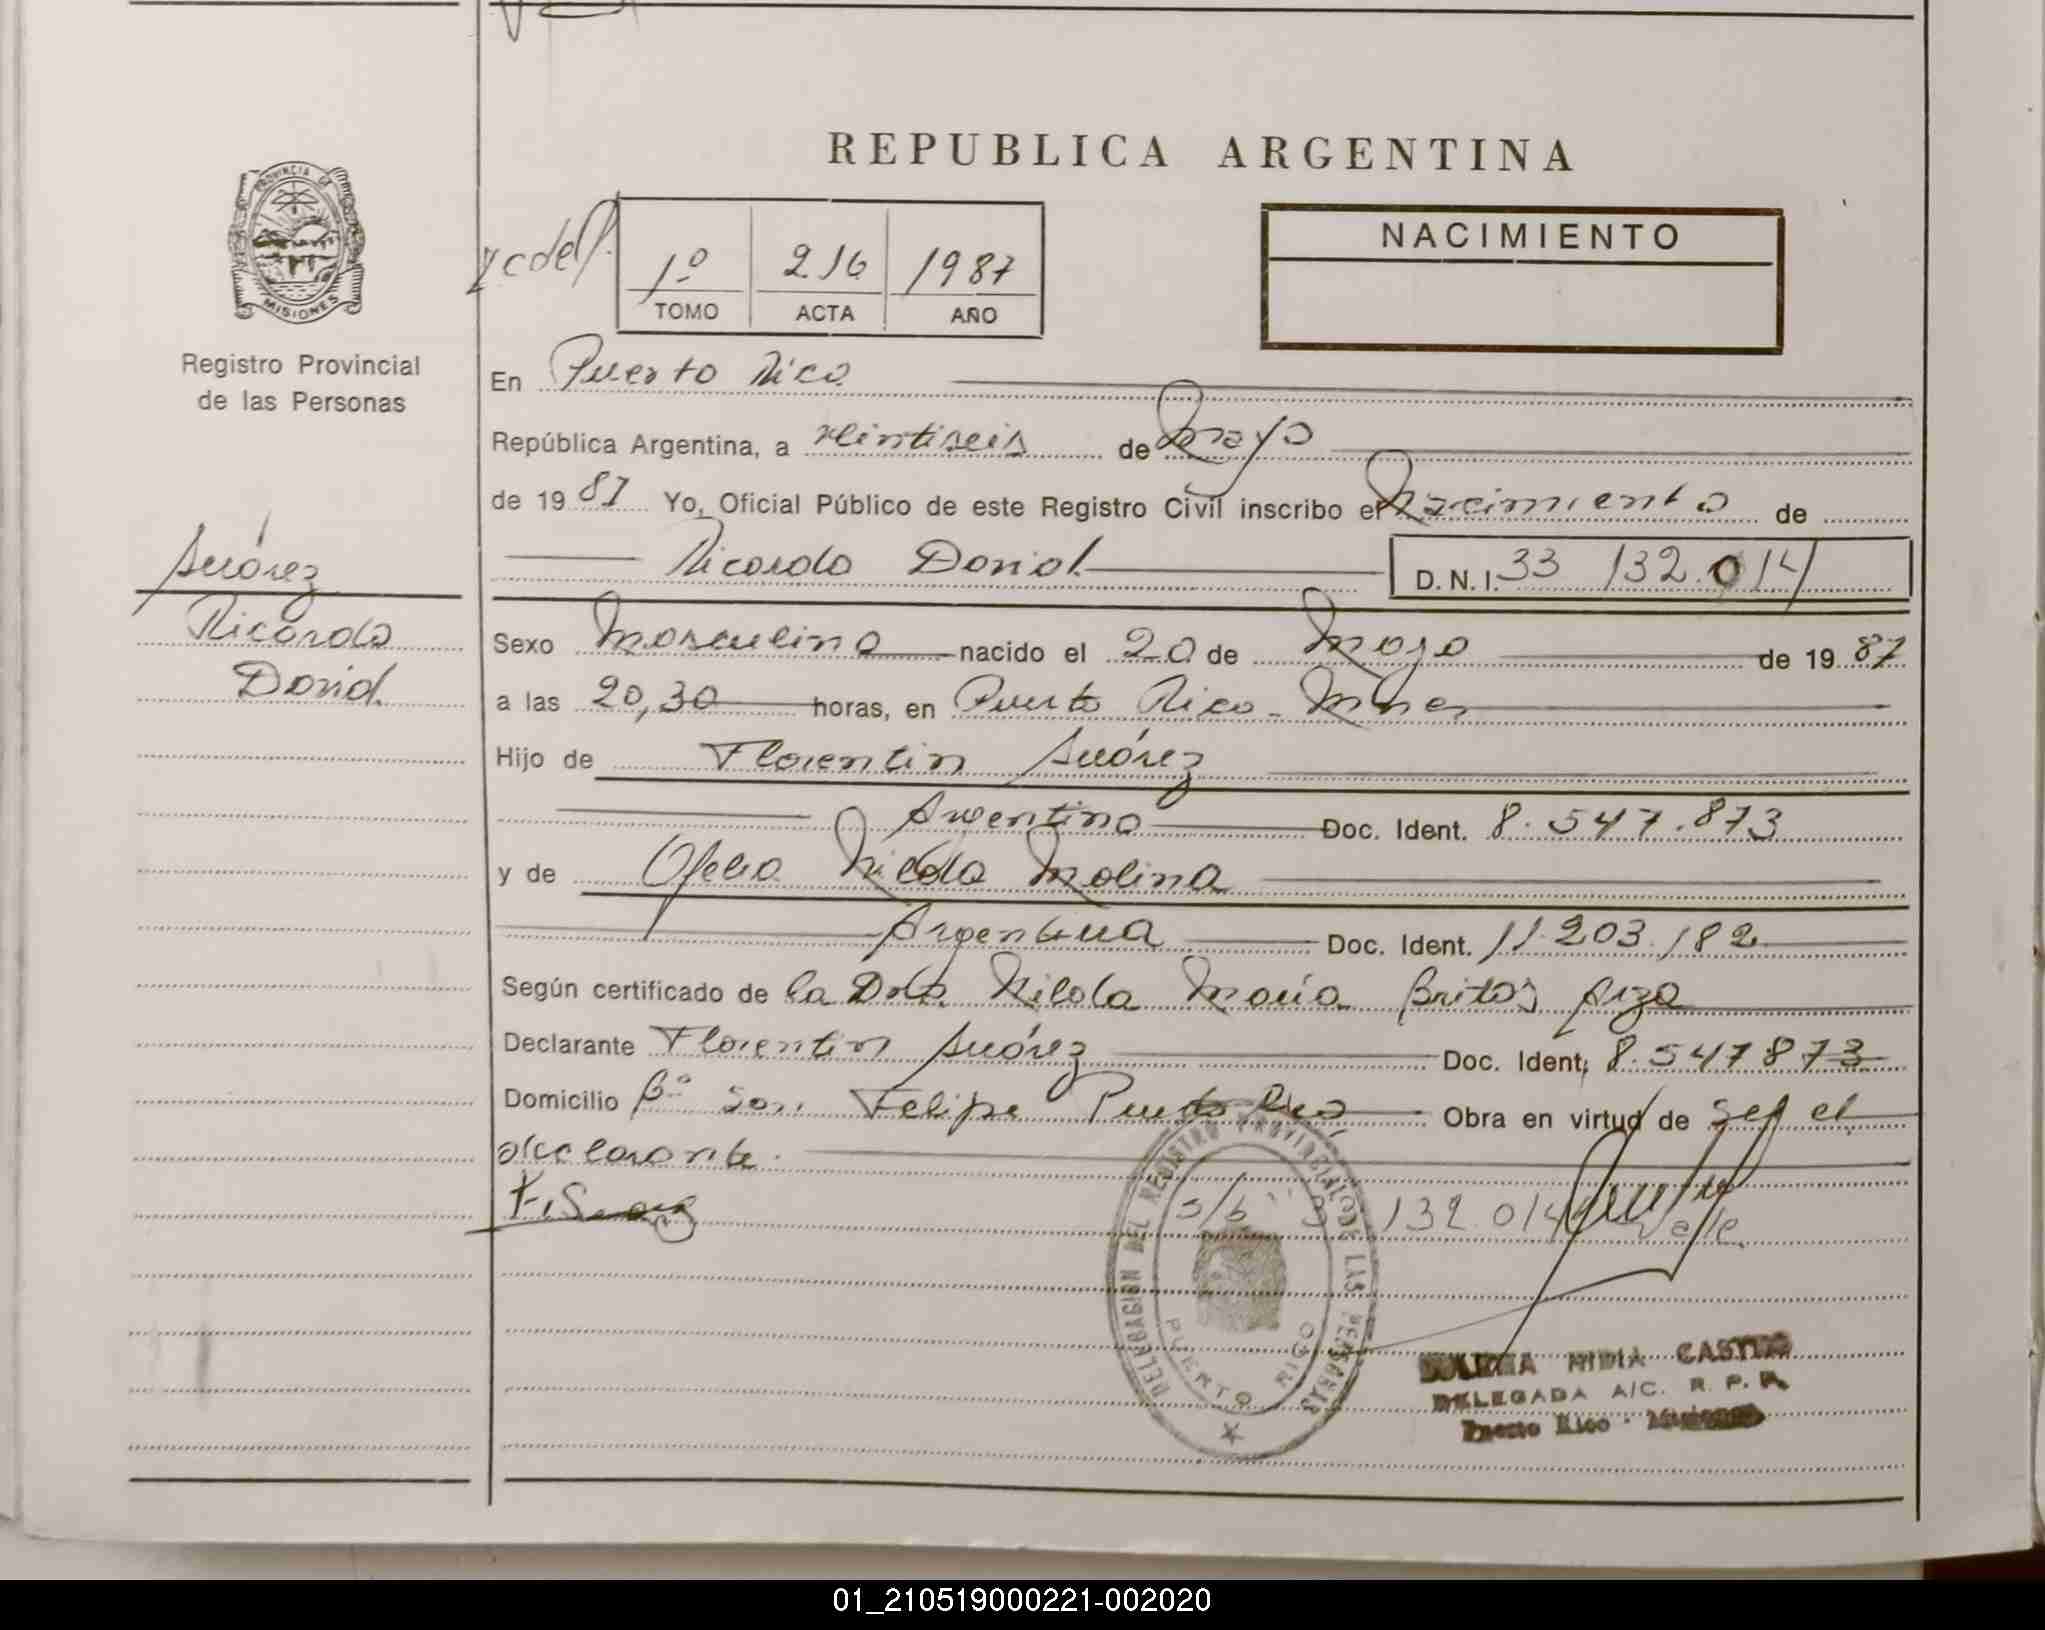 REPUBLICA ARGENTINA
PROVINCIA DE
MISIONES
Registro Provincial
de las Personas
1º 216 1987
TOMO ACTA AÑO
NACIMIENTO
En Puerto Rico
República Argentina, a Vientiseis de Mayo
de 1987 Yo, Oficial Público de este Registro Civil inscribo el Nacimiento de
Ricardo David D.N.I. 33 132.014
Suárez
Ricardo
David
Sexo Masculino nacido el 20 de Mayo de 1987
a las 20,30 horas, en Puerto Rico - Mnes
Hijo de Florentin Suárez
Argentino Doc. Ident. 8.547.873
y de Ofelia Nilda Molina
Argentina Doc. Ident. 11.203.182
Según certificado de la Dra. Nilda María Britos Arza
Declarante Florentin Suárez Doc. Ident. 8.547873
Domicilio Bº San Felipe Puerto Rico Obra en virtud de Ser el
declarante.
F. Suarez
132.014
DELEGACION DEL REGISTRO PROVINCIAL DE LAS PERSONAS
PUERTO RICO
NIDIA CASTRO
DELEGADA A/C. R. P. P.
Puerto Rico - Misiones
01_210519000221-002020